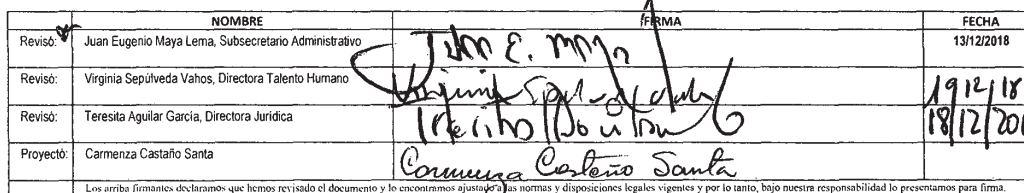 NOMBRE FIRMA FECHA
Revisó: Juan Eugenio Maya Lema, Subsecretario Administrativo Juan E. Maya 13/12/2018
Revisó: Virginia Sepúlveda Vahos, Directora Talento Humano Virginia Sepúlveda 19 12/18
Revisó: Teresita Aguilar García, Directora Jurídica 18/12/201
Proyectó: Carmenza Castaño Santa Carmenza Castaño Santa
Los arriba firmantes declaramos que hemos revisado el documento y lo encontramos ajustado a las normas y disposiciones legales vigentes y por lo tanto, bajo nuestra responsabilidad lo presentamos para firma.